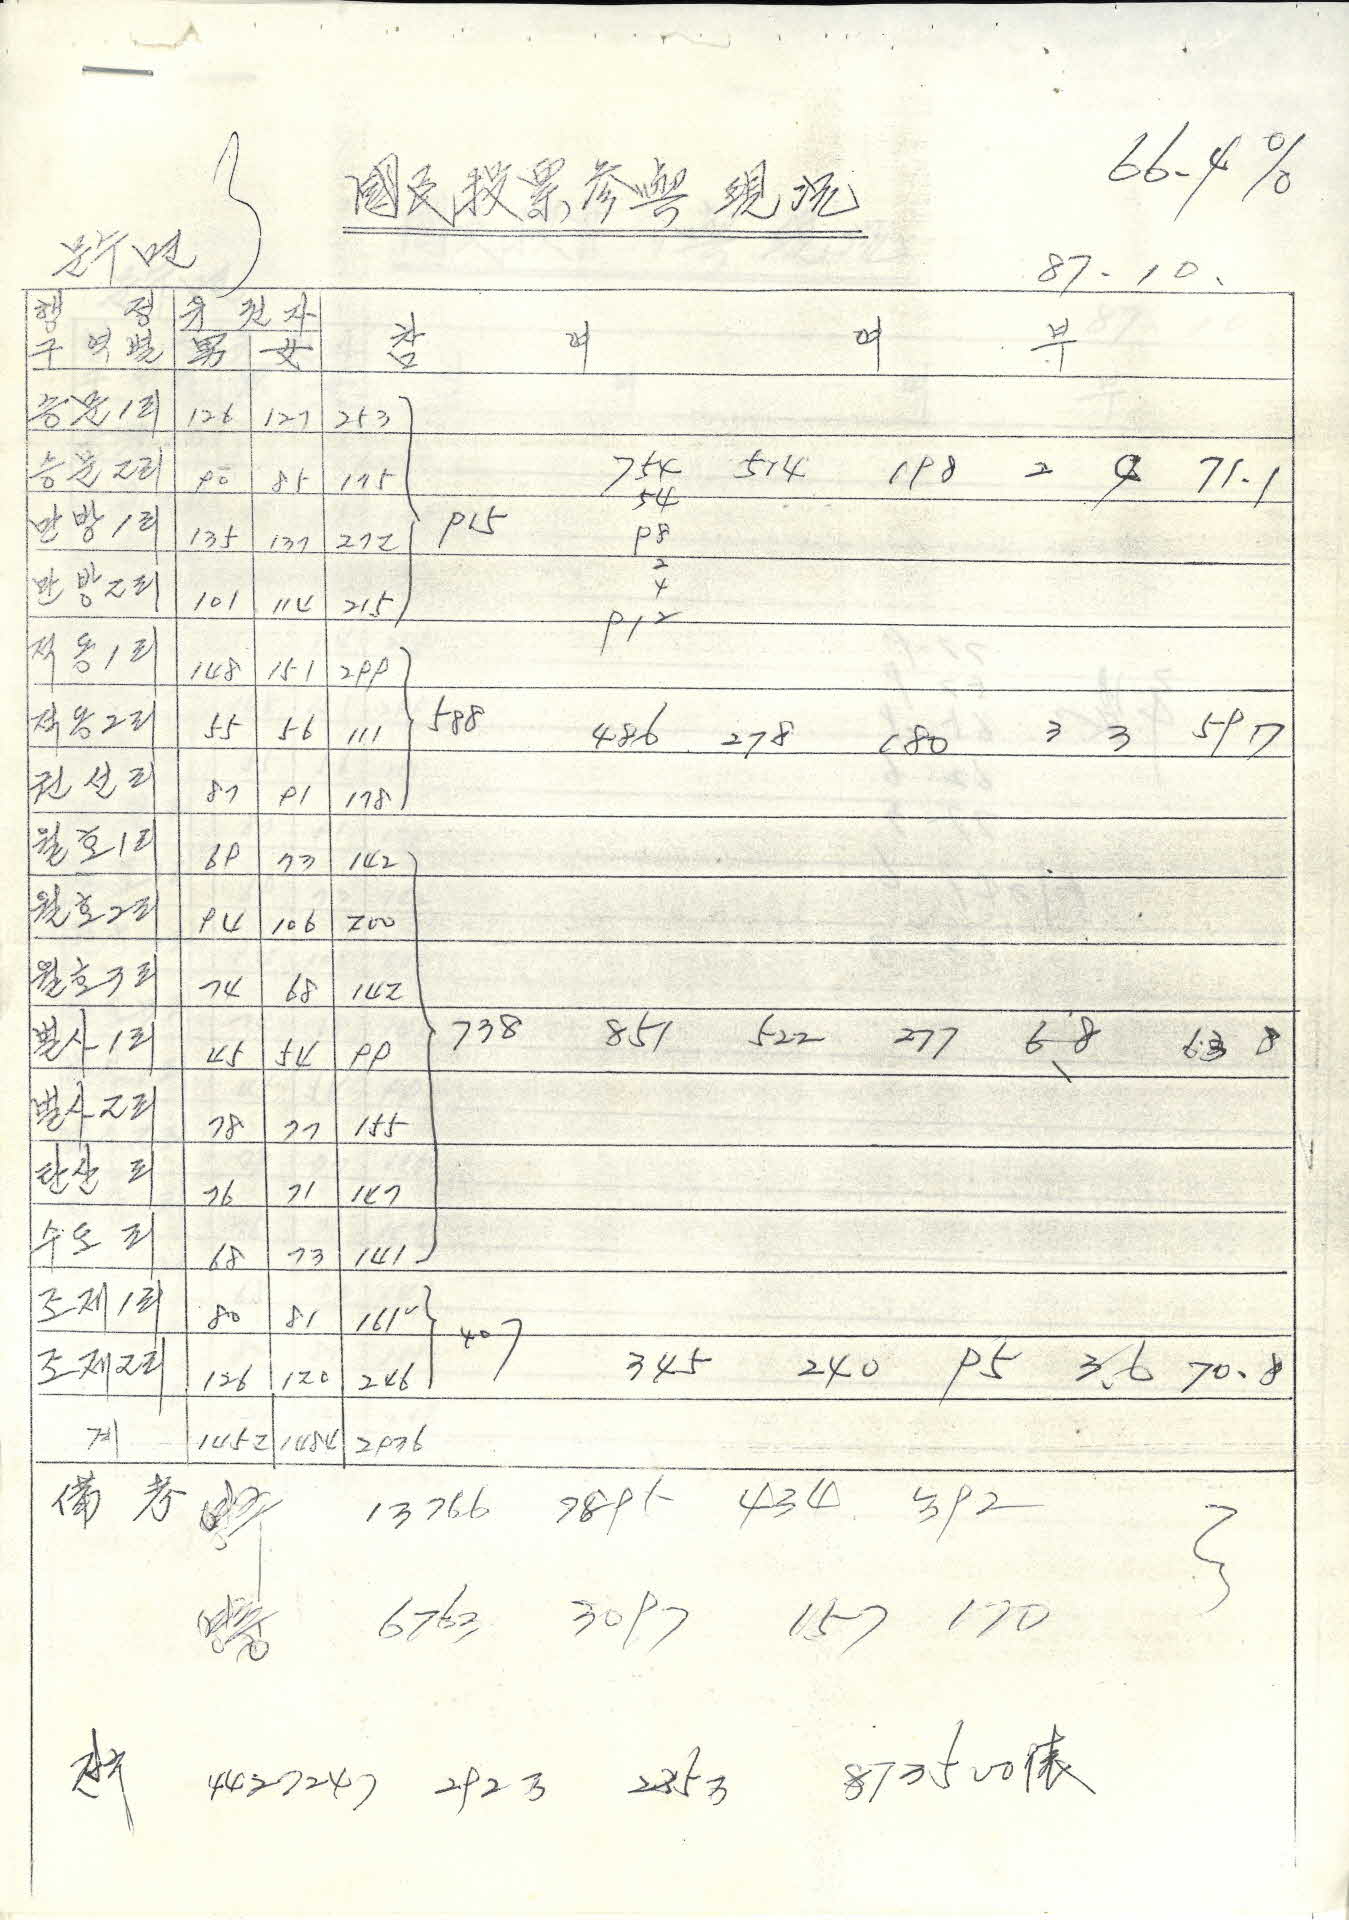 66.4%
國民投票参與 現況
문수면
87. 10.
행 정 유 권 자
구 역 별 男 女 참 여 여 부
승문1리 126 127 253
승문2리 90 85 175 754 514 198 2 71.1
54
만방1리 135 137 272 915 98
2
만방2리 101 114 215 4
912
적동1리 148 151 299
적동2리 55 56 111 588 486 278 180 3 3 597
권선리 87 91 178
월호1리 69 73 142
월호2리 94 106 200
월호3리 74 68 142
벌사1리 45 54 99 738 851 522 277 6 8 63 8
벌사2리 78 77 155
탄산리 76 71 147
수도리 68 73 141
조제1리 80 81 161 407
조제2리 126 120 246 345 240 95 3.6 70.8
계 1452 1484 2936
備考 13766 7895 434 392
6763 3097 157 170
4427247 2923 2353 873500俵